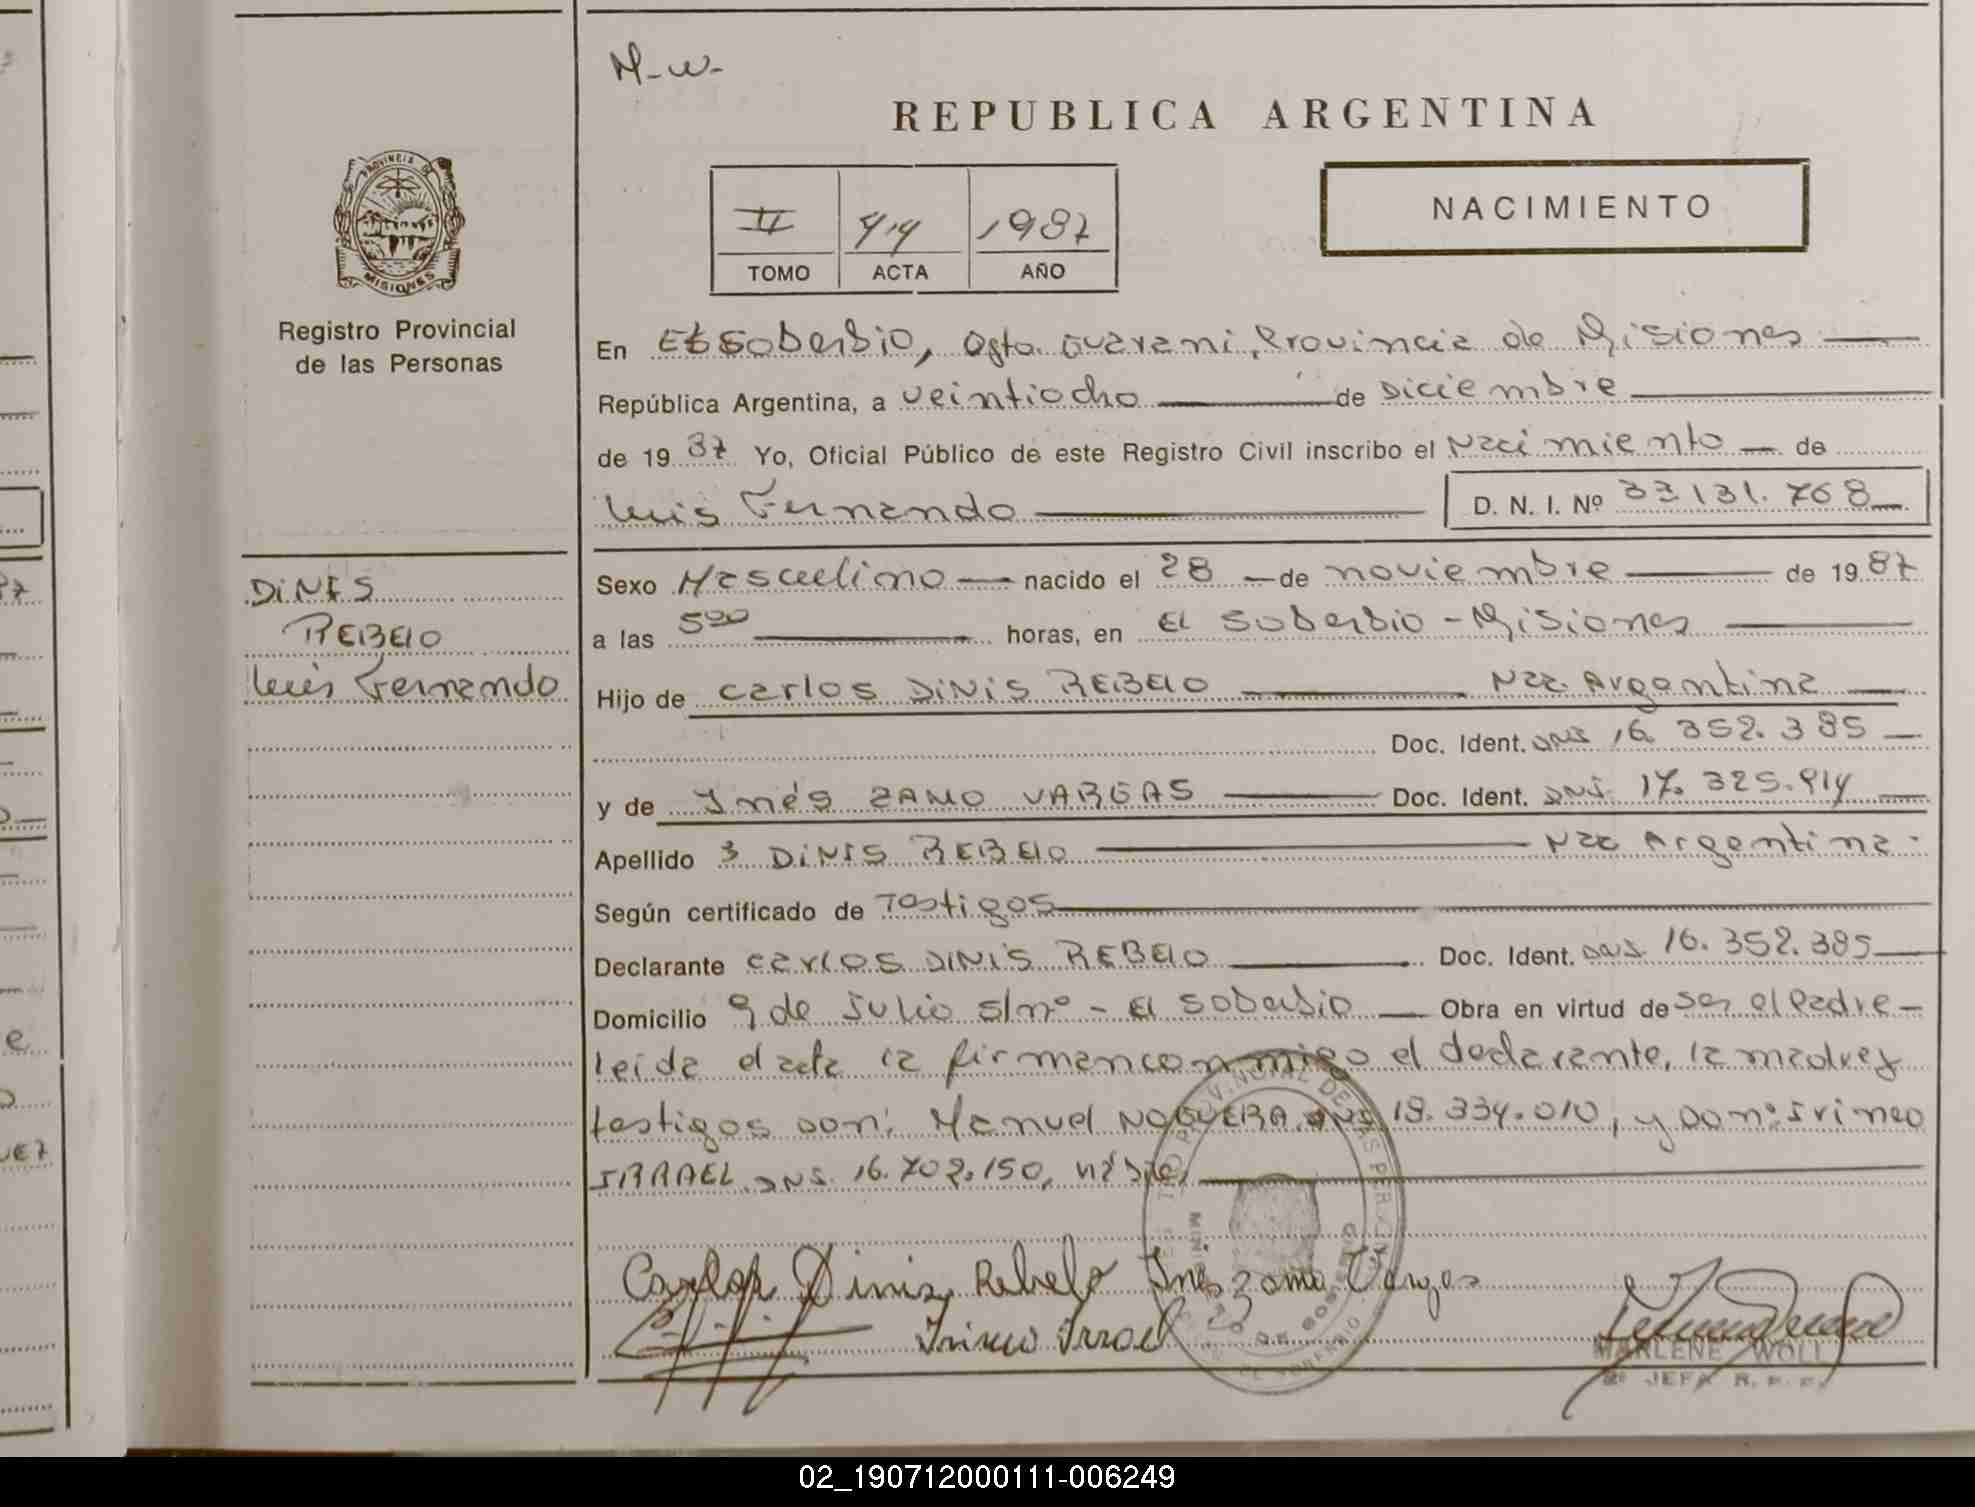 M-W-
REPUBLICA ARGENTINA
NACIMIENTO
II 414 1987
TOMO ACTA AÑO
PROVINCIA DE MISIONES
Registro Provincial
de las Personas
En El Soberbio, Dpto. Guarani, Provincia de Misiones
República Argentina, a veintiocho de Diciembre
de 1987 Yo, Oficial Público de este Registro Civil inscribo el Nacimiento de
Luis Fernando D. N. I. Nº 33.131.768
DINIS
REBELO
Luis Fernando
Sexo Masculino nacido el 28 de noviembre de 1987
a las 5 00 horas, en El Soberbio - Misiones
Hijo de Carlos DINIS REBELO Nac. Argentina
Doc. Ident. DNI 16.352.385
y de Inés ZANO VARGAS Doc. Ident. DNI. 17.325.914
Apellido 3 DINIS REBELO Nac Argentina.
Según certificado de Testigos
Declarante Carlos DINIS REBELO Doc. Ident. DNI. 16.352.385
Domicilio 9 de Julio s/nº - El Soberbio Obra en virtud de ser el Padre-
leida el acta la firman conmigo el declarante, la madre y
testigos son: Manuel NOGUERA DNI 18.334.010, y Don: Irineo
ISRRAEL DNI. 16.702.150,
Carlos Dinis Rebelo Ines Zano Vargas
Irineo Isrrael
MARLENE WOLL
2º JEFA R. P. P.
02_190712000111-006249